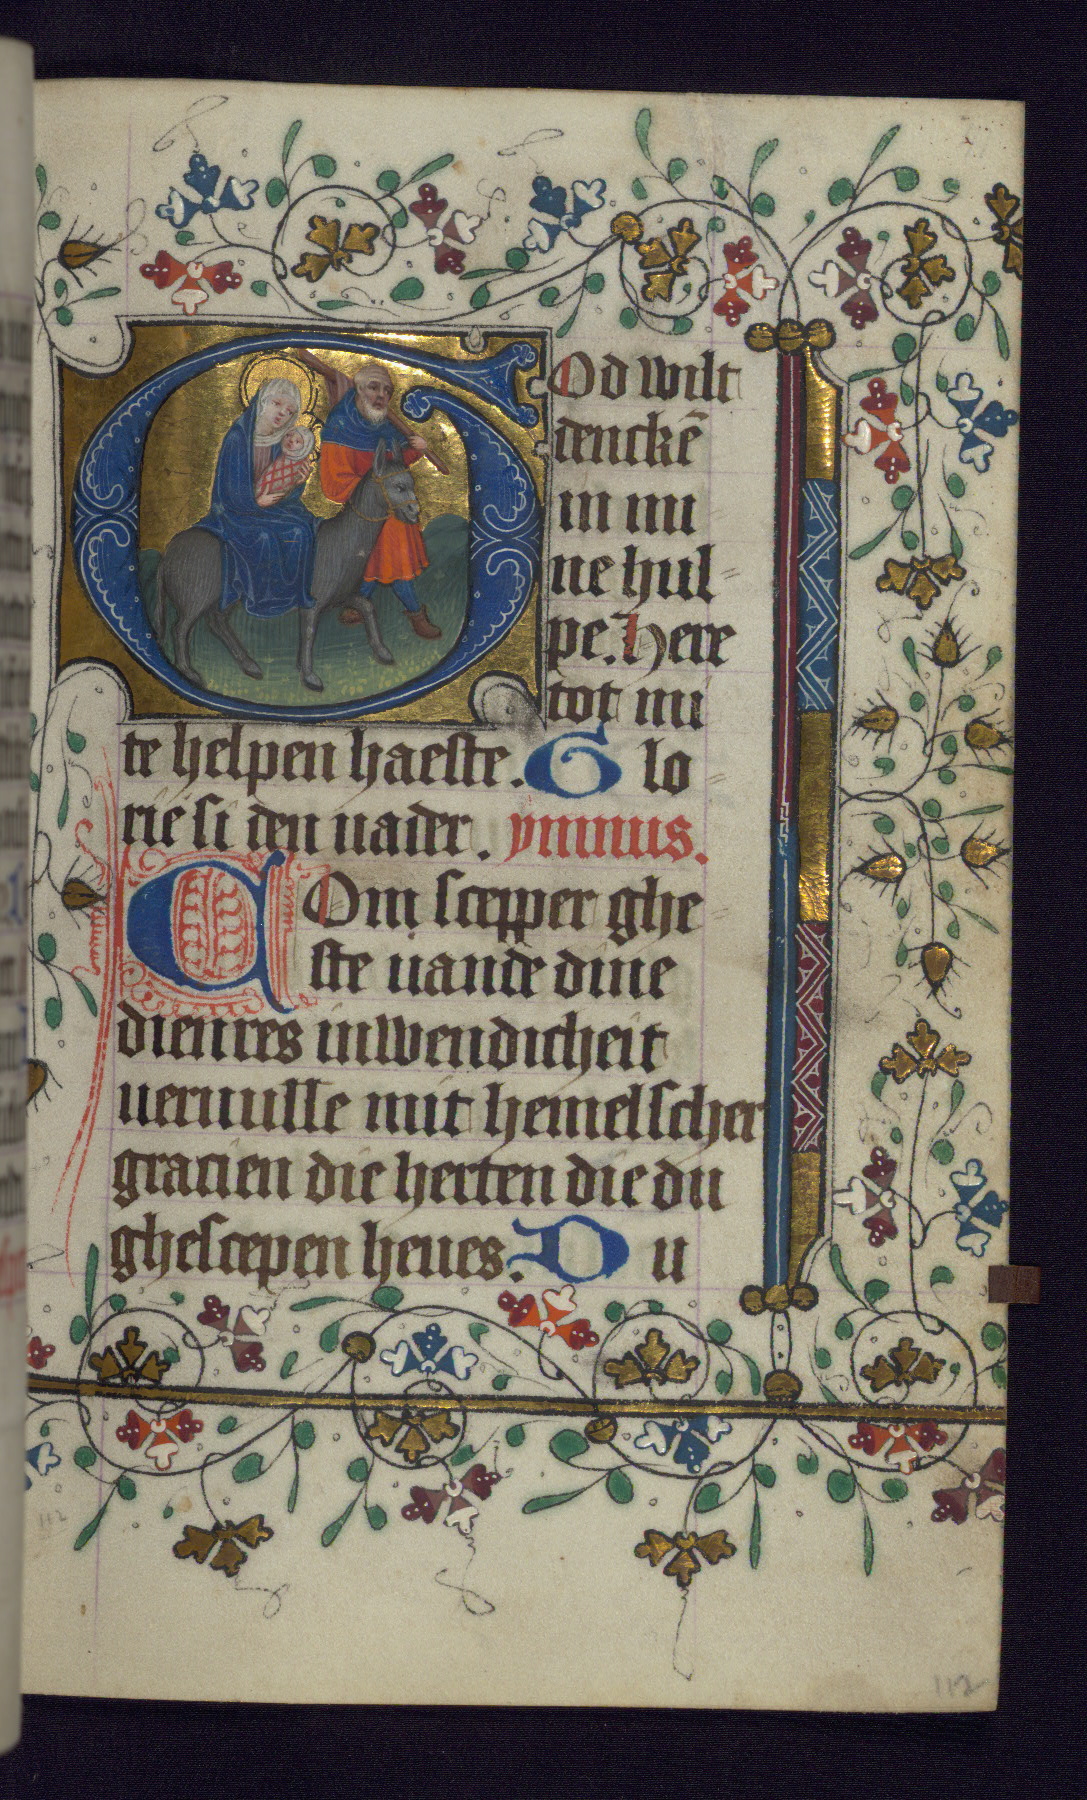 God wilt
denckē
in mi
ne hul
pe. Here
tot mi
te helpen haeste. Glo
rie si den uader. ymnus.
Com scepper ghe
ste uande dine
dienres inwendicheit
ueruulle mit hemelscher
gracien die herten die du
ghescepen heues. Du
112